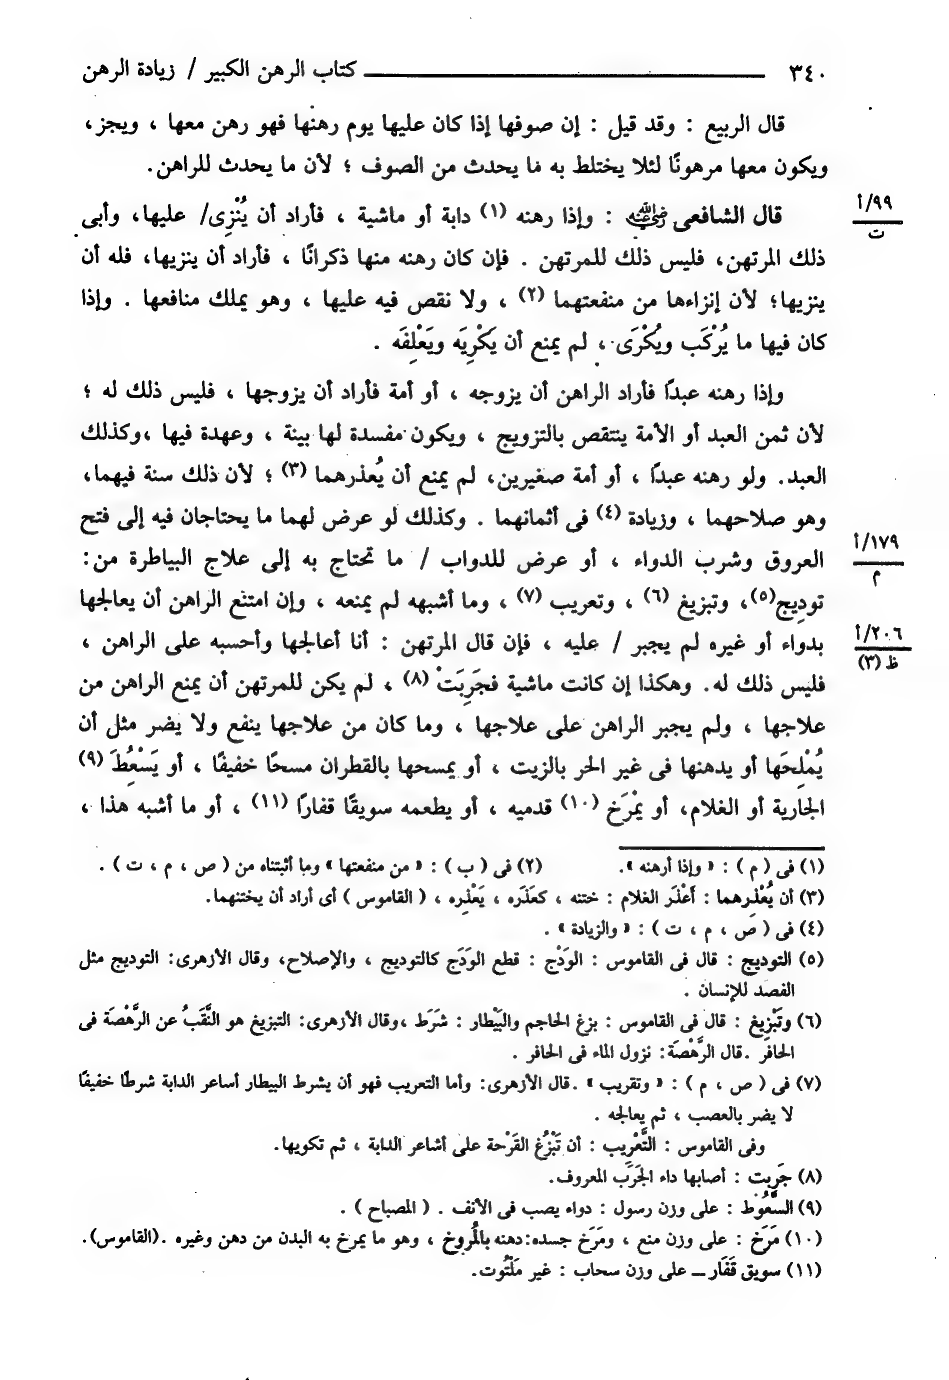 ٣٤٠ ــــــــــــ كتاب الرهن الكبير / زيادة الرهن
قال الربيع : وقد قيل : إن صوفها إذا كان عليها يوم رهنها فهو رهن معها ، ويجز،
ويكون معها مرهونًا لئلا يختلط به ما يحدث من الصوف ؛ لأن ما يحدث للراهن.
قال الشافعى رضي الله عنه : وإذا رهنه (١) دابة أو ماشية ، فأراد أن يُنْزِى/ عليها، وأبى
٩٩/أ
ت
ذلك المرتهن، فليس ذلك للمرتهن . فإن كان رهنه منها ذكرانًا ، فأراد أن ينزيها، فله أن
ينزيها؛ لأن إنزاءها من منفعتهما (٢) ، ولا نقص فيه عليها ، وهو يملك منافعها . وإذا
كان فيها ما يُرْكَب ويُكْرَى ، لم يمنع أن يَكْرِيَه ويَعْلِفَه .
وإذا رهنه عبدًا فأراد الراهن أن يزوجه ، أو أمة فأراد أن يزوجها ، فليس ذلك له ؛
لأن ثمن العبد أو الأمة ينتقص بالتزويج ، ويكون مفسدة لها بينة ، وعهدة فيها ،وكذلك
العبد. ولو رهنه عبدًا ، أو أمة صغيرين، لم يمنع أن يُعذرهما (٣) ؛ لأن ذلك سنة فيهما،
وهو صلاحهما ، وزيادة (٤) فى أثمانهما . وكذلك لو عرض لهما ما يحتاجان فيه إلى فتح
العروق وشرب الدواء ، أو عرض للدواب / ما تحتاج به إلى علاج البياطرة من:
١٧٩/أ
م
توديج(٥)، وتبزيغ (٦) ، وتعريب (٧) ، وما أشبهه لم يمنعه ، وإن امتنع الراهن أن يعالجها
بدواء أو غيره لم يجبر / عليه ، فإن قال المرتهن : أنا أعالجها وأحسبه على الراهن ،
٢٠٦/أ
ظ (٣)
فليس ذلك له. وهكذا إن كانت ماشية فجَرِبَتْ (٨) ، لم يكن للمرتهن أن يمنع الراهن من
علاجها ، ولم يجبر الراهن على علاجها ، وما كان من علاجها ينفع ولا يضر مثل أن
يُمْلِحَها أو يدهنها فى غير الحر بالزيت ، أو يمسحها بالقطران مسحًا خفيفًا ، أو يَسْعُطَ (٩)
الجارية أو الغلام، أو يمْرَخ (١٠) قدميه ، أو يطعمه سويقًا قفارًا (١١) ، أو ما أشبه هذا ،
(١) فى ( م ) : « وإذا أرهنه ». (٢) فى ( ب ) : « من منفعتها » وما أثبتناه من ( ص ، م ، ت ) .
(٣) أن يُعْذرهما : أَعْذَر الغلام : ختنه ، كعَذَره ، يَعْذِره ، ( القاموس ) أى أراد أن يختنهما.
(٤) فى ( ص ، م ، ت ) : « والزيادة » .
(٥) التوديج : قال فى القاموس : الوَدْج : قطع الوَدَج كالتوديج ، والإصلاح، وقال الأزهرى: التوديج مثل
الفصد للإنسان .
(٦) وتَبْزِيغ : قال فى القاموس : بزغ الحاجم والبَيْطار : شَرَط ،وقال الأزهرى: التبزيغ هو النَّقَبُ عن الرَّهْصَة فى
الحافر .قال الرَّهْصَة: نزول الماء فى الحافر .
(٧) فى ( ص ، م ) : « وتقريب » .قال الأزهرى: وأما التعريب فهو أن يشرط البيطار أساعر الدابة شرطًا خفيفًا
لا يضر بالعصب ، ثم يعالجه .
وفى القاموس : التَّعْرِيب : أن تَبْزُغ القَرْحة على أشاعر الدابة ، ثم تكويها.
(٨) جَرِبت : أصابها داء الجَرَب المعروف.
(٩) السَّعُوط : على وزن رسول : دواء يصب فى الأنف . ( المصباح ) .
(١٠) مَرَخ : على وزن منع ، ومَرَخ جسده:دهنه بالمُروخ ، وهو ما يمرخ به البدن من دهن وغيره .(القاموس).
(١١) سويق قَفَار ــ على وزن سحاب : غير مَلْتُوت.